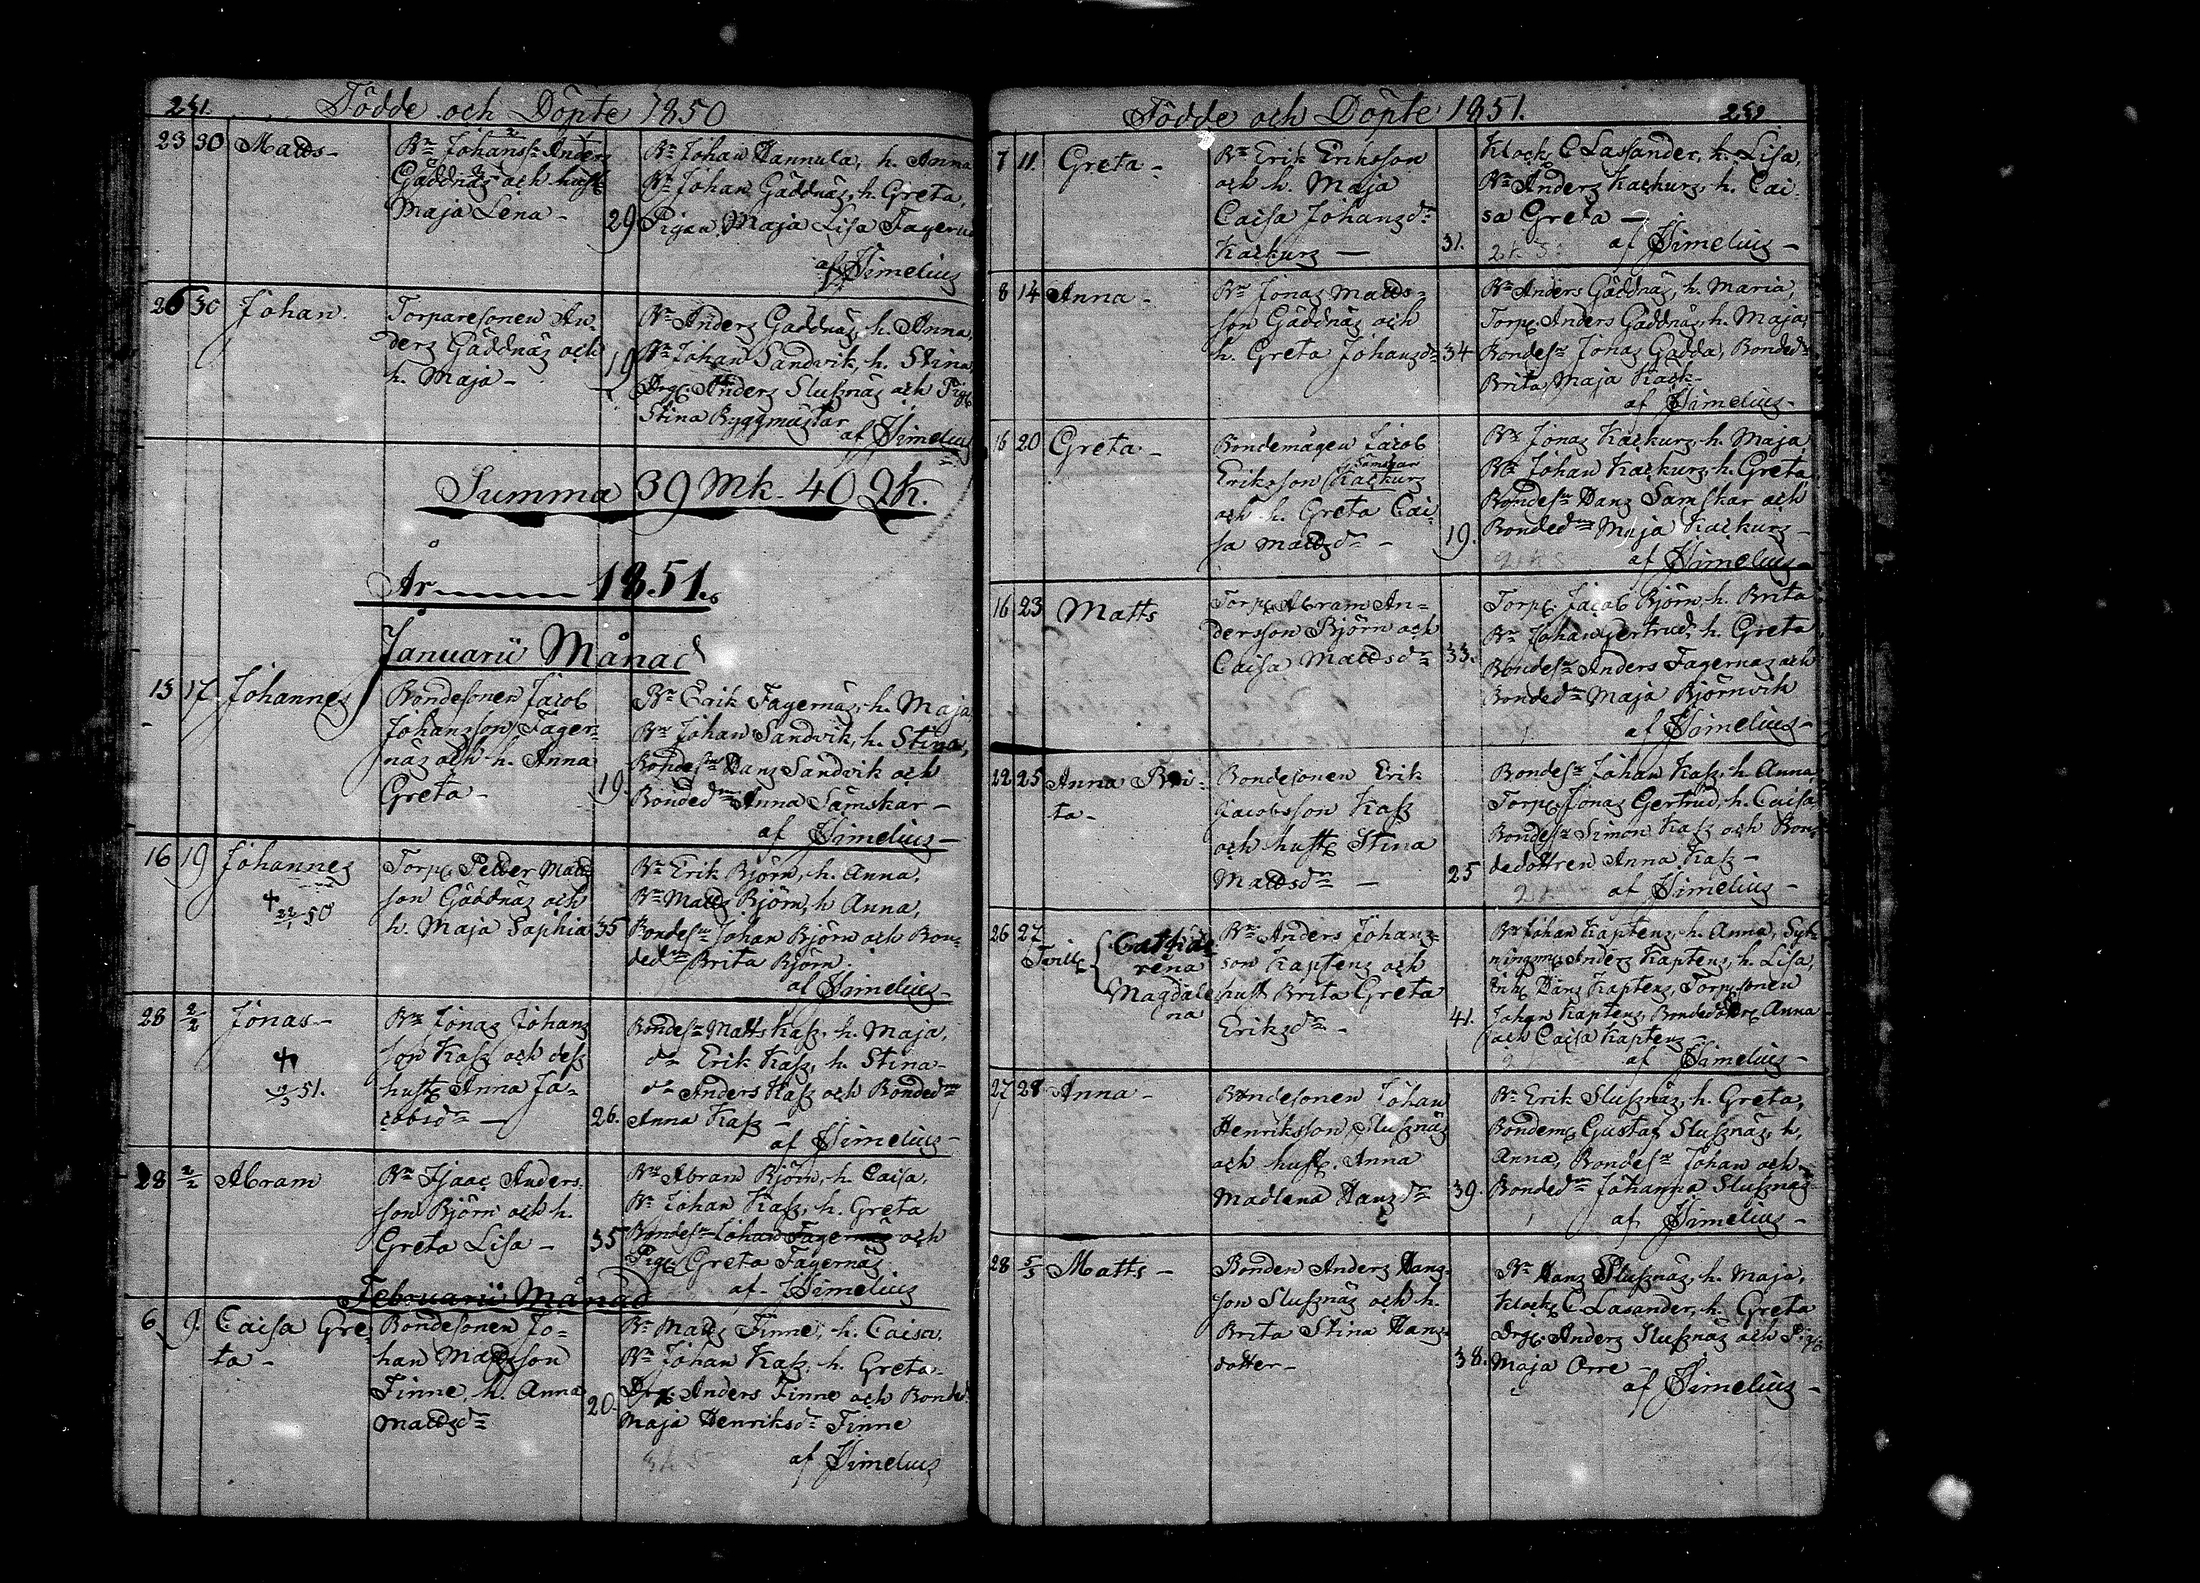 251. Födde och Döpte 1850
23 30 Matts - Bn Johanss: Anders
Gäddnäs och hust
Maja Lena -
29
Bn Johan Hannula, h. Anna
Bn Johan Gäddnäs, h. Greta,
Pigan Maja Lisa Fagernä
af Simelius
26 30 Johan. Torparesonen An-
ders Gäddnäs och
h. Maja -
19
Bn Anders Gäddnäs, h. Anna,
Bn Johan Sandvik, h. Stina,
Drg. Anders Slussnäs och Pig.
Stina Byggmästar
af Simelius
Summa 39 Mk. 40 Qk.
År 1851.
Januarii Månad
15 17 Johannes Bondesonen Jacob
Johansson Fager-
näs och h. Anna
Greta -
19.
Bn Erik Fagernäs, h. Maja,
Bn Johan Sandvik, h. Stina,
Bondesn Hans Sandvik och
Bondedn Anna Sämskar -
af Simelius -
16 19 Johannes Torp. Petter Matts
son Gäddnäs och
h. Maja Sophia
35
Bn Erik Björn, h. Anna,
Bn Matts Björn, h Anna,
Bondesn Johan Björn och Bon-
dedn Brita Björn.
af Simelius -
28 2/2 Jonas - Bn Jonas Johans
son Kass och dess
hust Anna Ja-
cobsdr -
51.
26.
Bondesn Matts Kass, h. Maja,
dn Erik Kass, h. Stina -
dn Anders Kass och Bondedn
Anna Kass -
af Simelius -
28 2/2 Abram Bn Isaac Anders
son Björn och h.
Greta Lisa -
35
Bn Abram Björn, h. Caisa,
Bn Johan Kass, h. Greta
Bondesn Johan Fagernäs och
Pig. Greta Fagernäs
af Simelius
Februarii Månad
6 9. Caisa Gre
ta -
Bondesonen Jo-
han Mattsson
Finne, h. Anna
Mattsdr
20.
Bn Matts Finne, h. Caisa,
Bn Johan Kass, h. Greta
Drg. Anders Finne och Bonded
Maja Henriksdr Finne
af Simelius
Födde och Döpte 1851. 252.
7 11. Greta - Bn Erik Eriksson
och h. Maja
Caisa Johansdr
Kackurs -
31.
Klock. C Lassander, h. Lisa,
Bn Anders Kackurs, h. Cai-
sa Greta -
af Simelius -
8 14 Anna - Bn Jonas Matts-
son Gäddnäs och
h. Greta Johansdr
34
Bn Anders Gäddnäs, h. Maria,
Torp. Anders Gäddnäs, h. Maja,
Bondesn Jonas Gädda, Bondedn
Brita Maja Kack -
af Simelius -
16 20 Greta - Bondemågen Jacob
Sämskar
Eriksson Kackurs
och h. Greta Cai
sa Mattsdr -
19.
Bn Jonas Kackurs, h. Maja
Bn Johan Kackurs, h. Greta
Bondesn Hans Sämskar och
Bondedn Maja Kackurs -
af Simelius -
16 23 Matts Torp. Abram An-
dersson Björn och
Caisa Mattsdr
33.
Torp. Jacob Björn, h. Brita
Bn Johan Gertrud, h. Greta
Bondesn Anders Fagernäs och
Bondedn Maja Björnvik
af Simelius -
22 25 Anna Bri-
ta -
Bondesonen Erik
Jacobsson Kass
och hust Stina
Mattsdn -
25
Bondesn Johan Kass, h. Anna
Torp. Jonas Gertrud, h. Caisa
Bondesn Simon Kass och Bon-
dedottren Anna Kass -
af Simelius -
26 27 Tvill. Catha
rena
Magdale
na
Bn Anders Johans-
son Kaptens och
hust Brita Greta
Eriksdr -
41.
Bn Johan Kaptens, h. Anna, Syt-
ningsm. Anders Kaptens, h. Lisa,
Enk. Hans Kaptens, Torp.sonen
Johan Kaptens, Bondedöttr. Anna
och Caisa Kaptens -
af Simelius -
27 28 Anna - Bondesonen Johan
Henriksson Slussnäs
och hust. Anna
Madlena Hansdr
39.
Bn Erik Slussnäs, h. Greta,
Bondem. Gustaf Slussnäs, h,
Anna, Bondesn Johan och
Bondedn Johanna Slussnäs
af Simelius -
28 5/3 Matts - Bonden Anders Hans-
son Slussnäs och h.
Brita Stina Hans
dotter -
38.
Bn Hans Slussnäs, h. Maja,
Klock. C Lasander, h. Greta
Drg. Anders Slussnäs och Pig.
Maja Orre -
af Simelius -